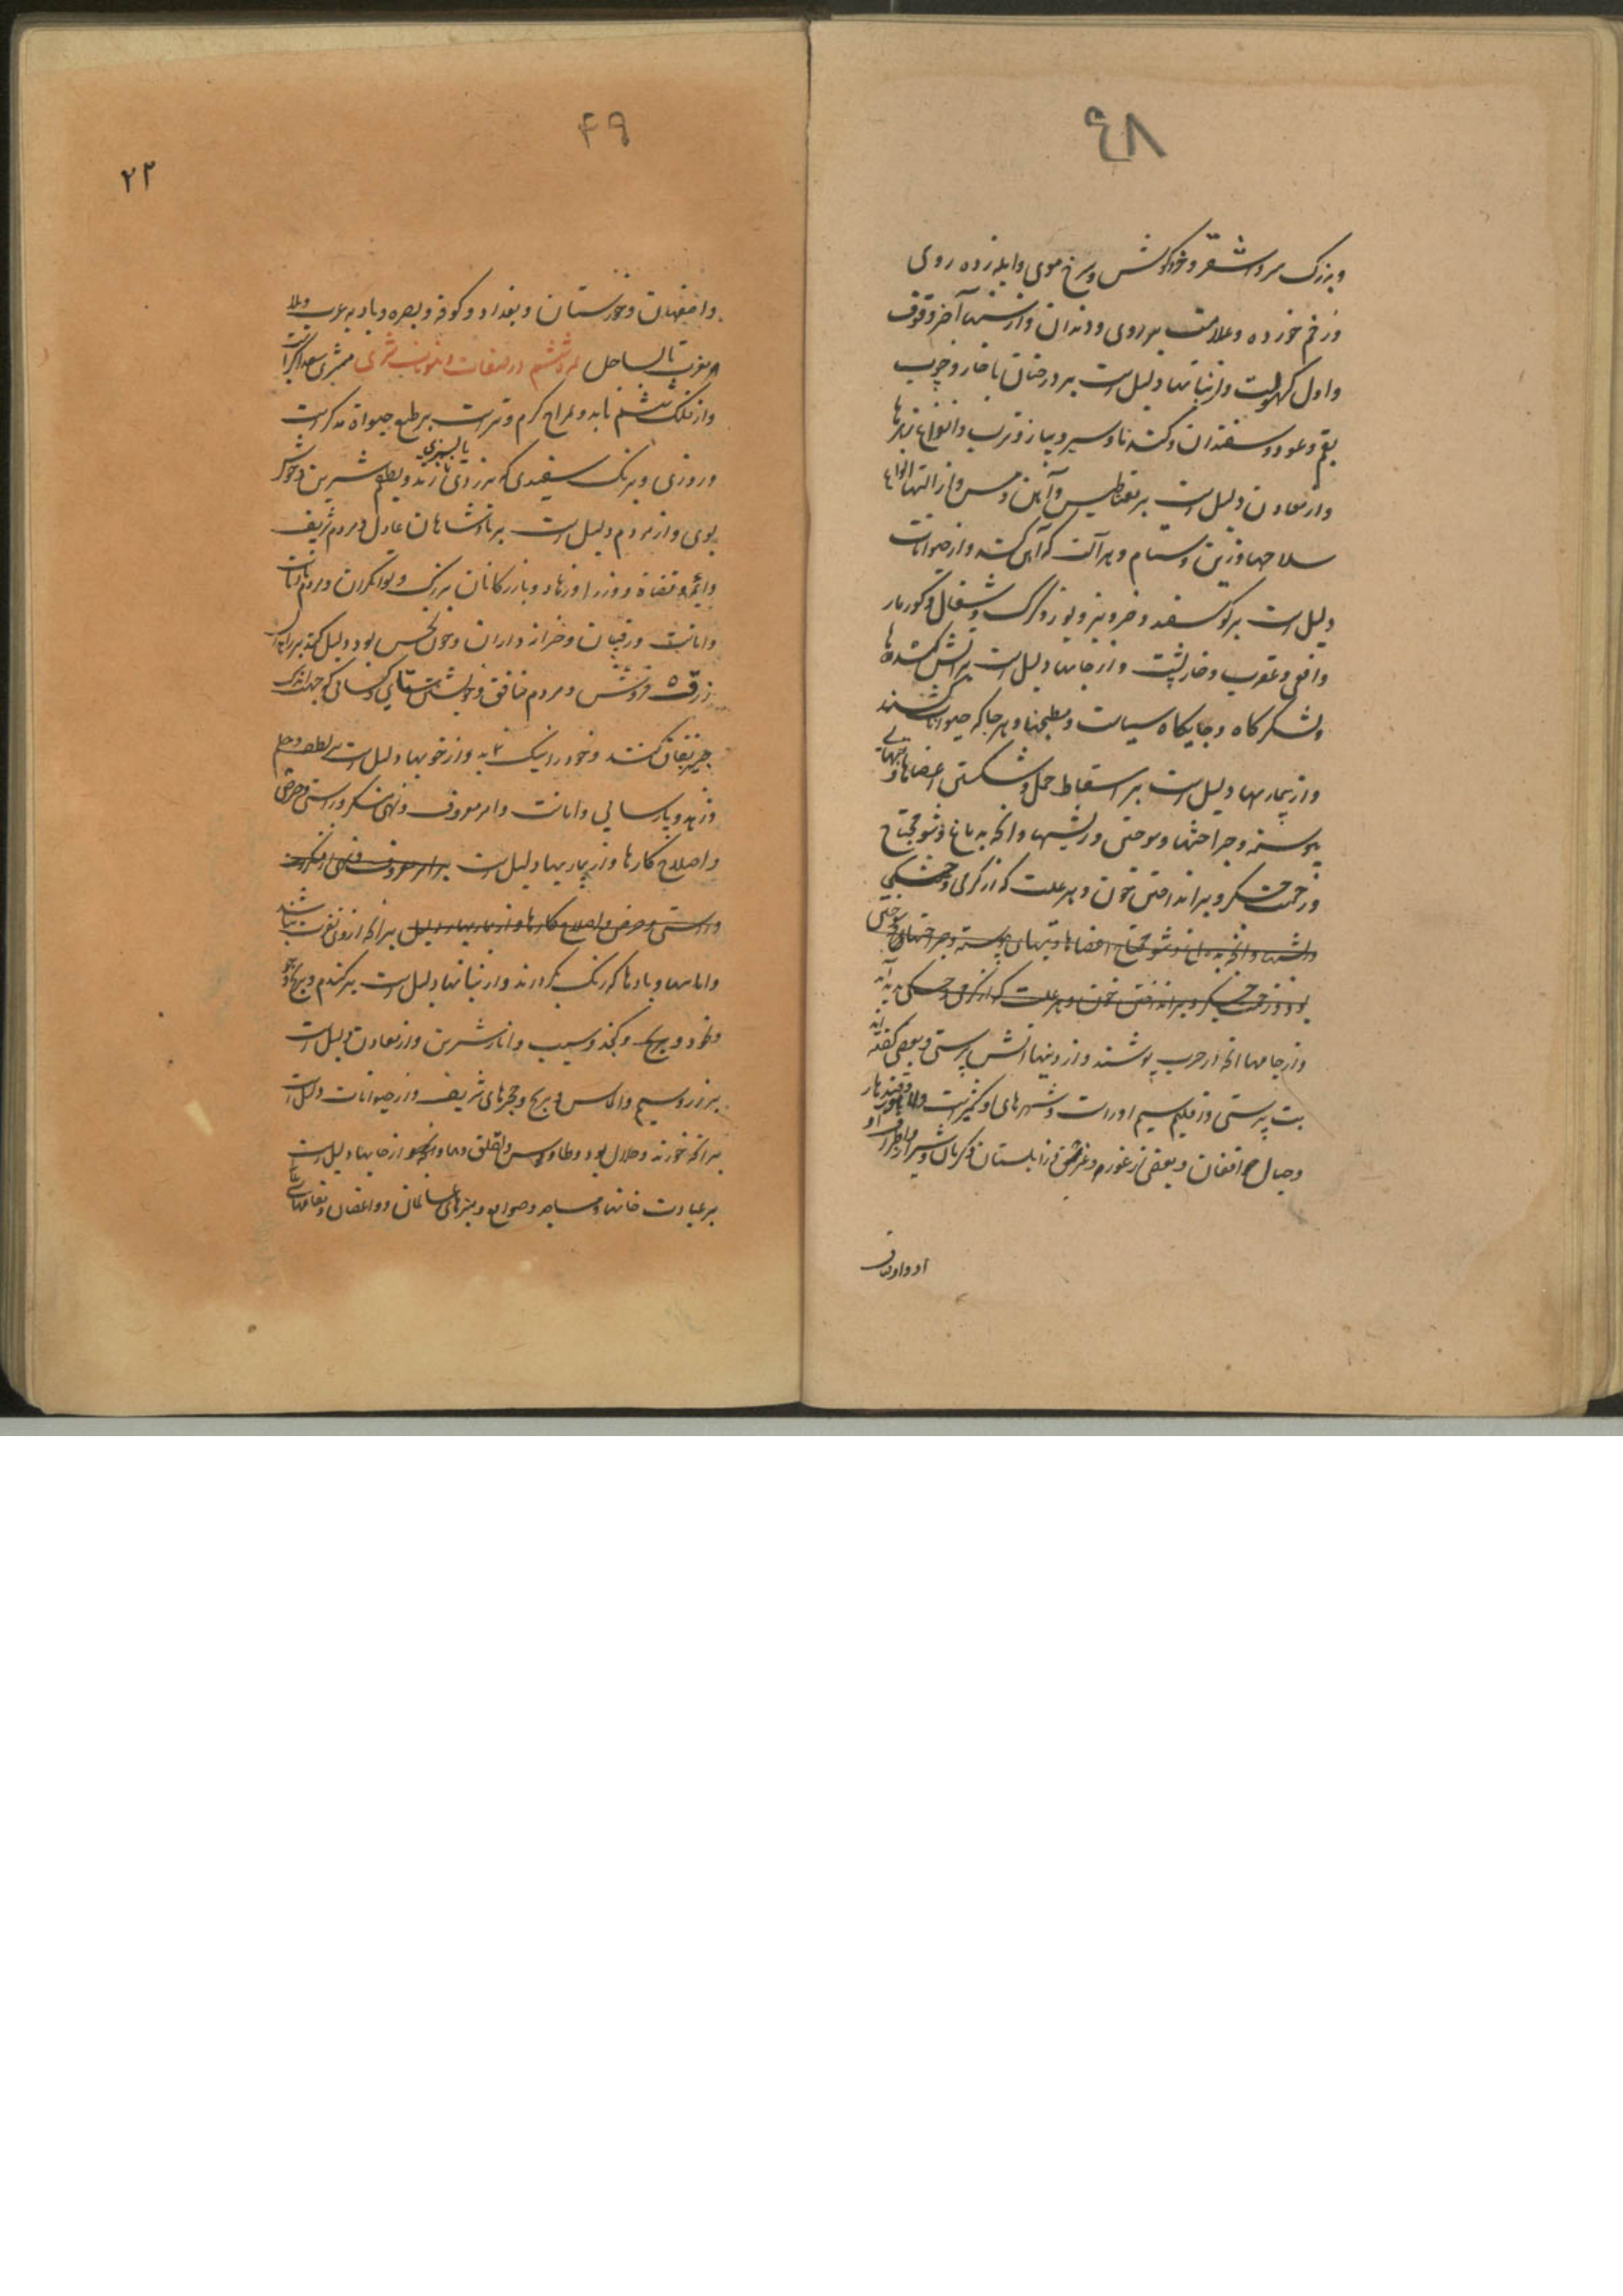 ٤٨
و بزرک سر و اشقر و خورد کوش و سرخ موی و ابله زده روی
و زخم خورده و علامت بر روی و دندان و از سنها آخر وقوف
و اول کهولیت و از نباتها دلیل است بر درختان با خار و چوب
بقم و عود و سفندان و کندنا و سیر و پیاز و ترب و انواع زهرها
و از معادن دلیل است بر مغناطیس و آهن و مس و از التها انواع
سلاحها و زین و ستام و هر آلت که آهن کشد و از حیوانات
دلیل است بر کوسفند و خر و بز و یوز و کرک و شغال و کور مار
و افعی و عقرب و خارپشت و از جایها دلیل است بر آتش کدها
و لشکرگاه و جایگاه سیاست و مطبخها و هر جا که حیوانات کشند
و از بیماریها دلیل است بر اسقاط حمل و شکستن اعضاها و تبهای
پیوسته و جراحتها و سوختن و ریشها و انچه به داغ و شق محتاج
و زحمت جگر و بر انداختن خون و هر علت که از گرمی و خشکی
و ریشها و انچه به داغ و شق محتاج اعضاها و تبهای پیوسته و جراحتهای سوختن
بود و زحمت جگر و بر انداختن خون و هر علت که از گرمی و خشکی پدید آید
و از جامها انچه از حرب پوشند و از دینها اتش پرستی و بعضی گفته اند
بت پرستی و از اقلیم سیم او راست و شهرهای او کشمیر است و لاهاور و قندهار
و جبال افغان و بعضی از غور و غزنین و زابلستان و کرمان و شیراز و اطراف او
او و اوقاف
۴۹
۲۲
و اصفهان و خوزستان و بغداد و کوفه و بصره و بادیه عرب و بلاد
مغرب تا لب ساحل لمر ششم در صفات و منسوبات مشتری مشتری سعد اکبر است
و از فلک ششم تابد و مزاج کرم و تر است بر طبع حیوان مذکر است
و روزی و برنک سفیدی که بزردی یا بسبزی زند و بطعم شیرین و خوش
بوی و از مردم دلیل است بر پادشاهان عادل و مردم شریف
و ائمه و قضاه و وزرا و زهاد و بازرکانان بزرک و توانگران و مردم
و امانت و رقیبان و خزانه داران و چون نحس بود دلیل کند بر
زرق فروش و مردم منافق و خویشتن ستای و کسانی که جهت اندک
چیز نفاق کنند و خود را نیک نمایند و از خوبیها دلیل است بر لطف و حلم
و زهد و پارسایی و امانت و امر معروف و نهی منکر و راستی و حرص
و اصلاح کارها و از بیماریها دلیل است بر امر معروف و نهی از منکرات
و راستی و حرص و اصلاح کارها و از بیماریها دلیل بر انچه از ونی نفرت باشد
و اماسها و بادها که رنگ بگرداند و از نباتها دلیل است بر گندم و برنج و جو
و نخود و برنج و کنجد و سیب و انار شیرین و از معادن دلیل است
بر زر و سیم و الماس و برنج و حجرهای شریف و از حیوانات دلیل است
بر انچه خورند و حلال بود و طاوس و لقلق و هما و از جایها دلیل است
بر عبادت خانها و مساجد و صوامع و منبرهای عالمان و واعظان و مقامهای